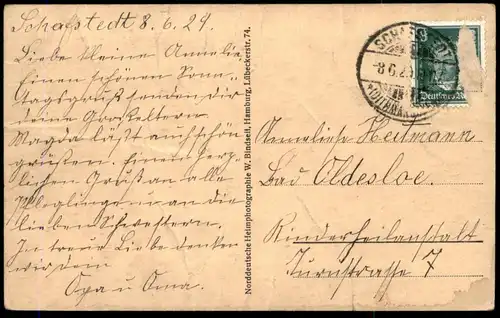 Schafstedt 8.6.29.
Liebe kleine Annelie
Einen schönen Sonn-
tagsgruß senden dir
deine Großeltern
Magda läßt auch schön
grüßen. Einen herz-
lichen Gruß an alle
Pfleglinge u an die
lieben Schwestern.
In treuer Liebe denken
wir dein
Opa u Oma.
Norddeutsche Heimphotographie W. Bindseil, Hamburg, Lübeckerstr. 74.
-8.6.2
Deutsches
Anneliese Heitmann
Bad Oldesloe.
Kinderheilanstalt
Turnstrasse 7